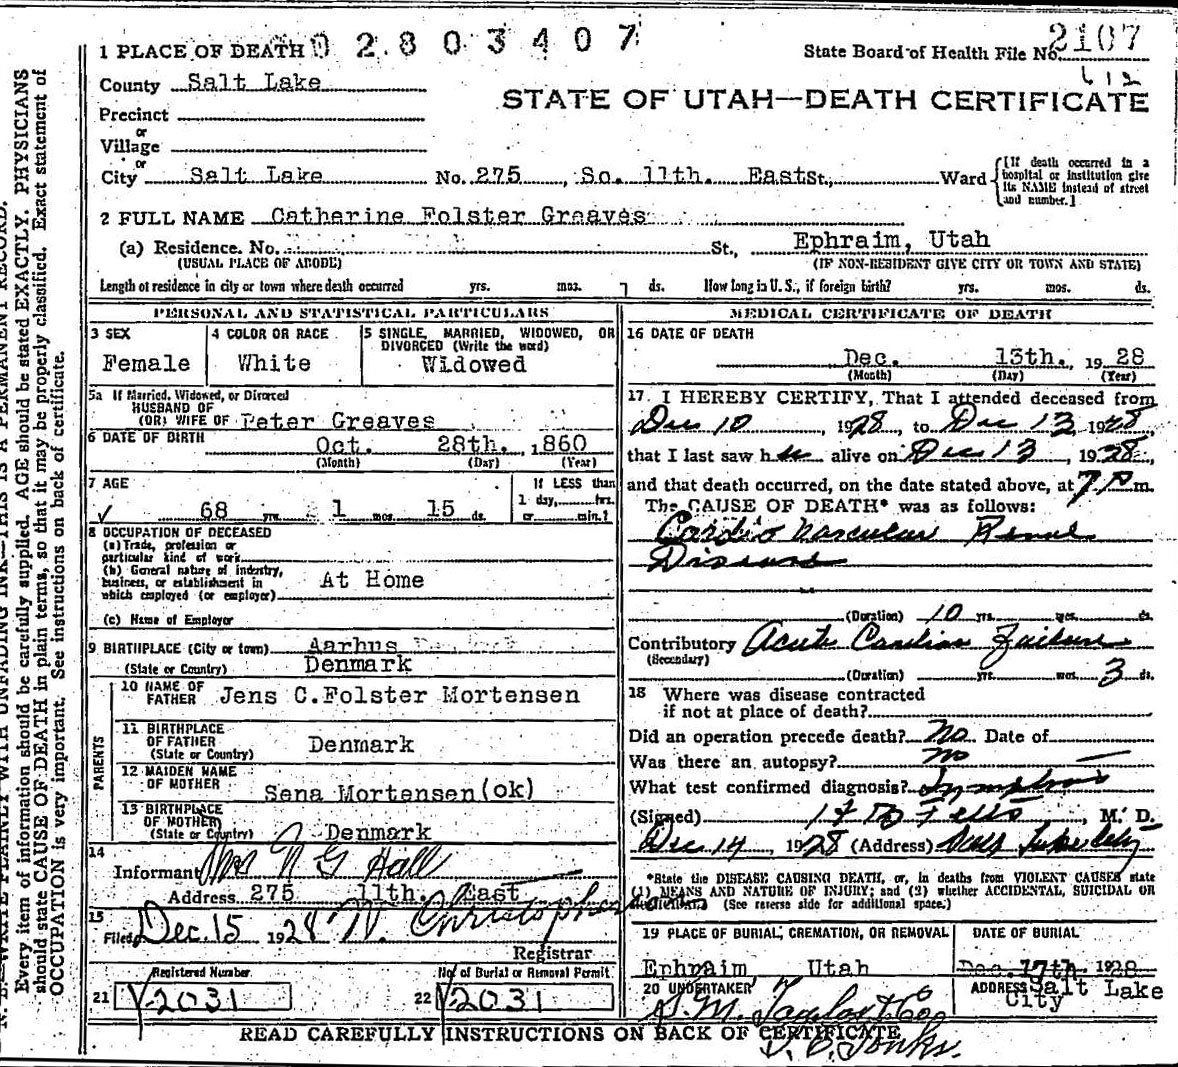 02803407
1 PLACE OF DEATH
State Board of Health File No. 2107
612
County Salt Lake
STATE OF UTAH—DEATH CERTIFICATE
Precinct
or
Village
or
City Salt Lake No. 275, So. 11th. East St., Ward
[If death occurred in a hospital or institution give its NAME instead of street and number.]
2 FULL NAME Catherine Folster Greaves
(a) Residence. No. St., Ephraim, Utah
(USUAL PLACE OF ABODE) (IF NON-RESIDENT GIVE CITY OR TOWN AND STATE)
Length of residence in city or town where death occurred yrs. mos. 7 ds. How long in U. S., if foreign birth? yrs. mos. ds.
PERSONAL AND STATISTICAL PARTICULARS
3 SEX 4 COLOR OR RACE 5 SINGLE, MARRIED, WIDOWED, OR
DIVORCED (Write the word)
Female White Widowed
5a If Married, Widowed, or Divorced
HUSBAND OF
(OR) WIFE OF Peter Greaves
6 DATE OF BIRTH Oct. 28th. 1860
(Month) (Day) (Year)
7 AGE If LESS than
1 day, hrs.
68 yrs. 1 mos. 15 ds. or min.?
8 OCCUPATION OF DECEASED
(a) Trade, profession or
particular kind of work
(b) General nature of industry,
business, or establishment in
which employed (or employer) At Home
(c) Name of Employer
9 BIRTHPLACE (City or town) Aarhus
(State or Country) Denmark
PARENTS
10 NAME OF
FATHER Jens C. Folster Mortensen
11 BIRTHPLACE
OF FATHER
(State or Country) Denmark
12 MAIDEN NAME
OF MOTHER Sena Mortensen (ok)
13 BIRTHPLACE
OF MOTHER
(State or Country) Denmark
14
Informant Mrs N G Hall
Address 275 11th. East
15
Filed Dec. 15 1928
Registrar
Registered Number No of Burial or Removal Permit
21 V-2031 22 V-2031
MEDICAL CERTIFICATE OF DEATH
16 DATE OF DEATH
Dec. 13th. 1928
(Month) (Day) (Year)
17 I HEREBY CERTIFY, That I attended deceased from
Dec 10, 1928, to Dec 13, 1928,
that I last saw her alive on Dec 13, 1928,
and that death occurred, on the date stated above, at 7 P m.
The CAUSE OF DEATH* was as follows:
Cardio Vascular Renal
Disease
(Duration) 10 yrs. mos. ds.
Contributory Acute Cardiac Failure
(Secondary)
(Duration) yrs. mos. 3 ds.
18 Where was disease contracted
if not at place of death?
Did an operation precede death? No Date of
Was there an autopsy? No
What test confirmed diagnosis? Symptoms
(Signed) M. D.
Dec 14, 1928 (Address) Salt Lake City
*State the DISEASE CAUSING DEATH, or, in deaths from VIOLENT CAUSES state
(1) MEANS AND NATURE OF INJURY; and (2) whether ACCIDENTAL, SUICIDAL OR
(See reverse side for additional space.)
19 PLACE OF BURIAL, CREMATION, OR REMOVAL DATE OF BURIAL
Ephraim Utah Dec. 17th 1928
20 UNDERTAKER ADDRESS Salt Lake
City
READ CAREFULLY INSTRUCTIONS ON BACK OF CERTIFICATE
N. B.—WRITE PLAINLY WITH UNFADING INK—THIS IS A PERMANENT RECORD.
Every item of information should be carefully supplied. AGE should be stated EXACTLY. PHYSICIANS
should state CAUSE OF DEATH in plain terms, so that it may be properly classified. Exact statement of
OCCUPATION is very important. See instructions on back of certificate.